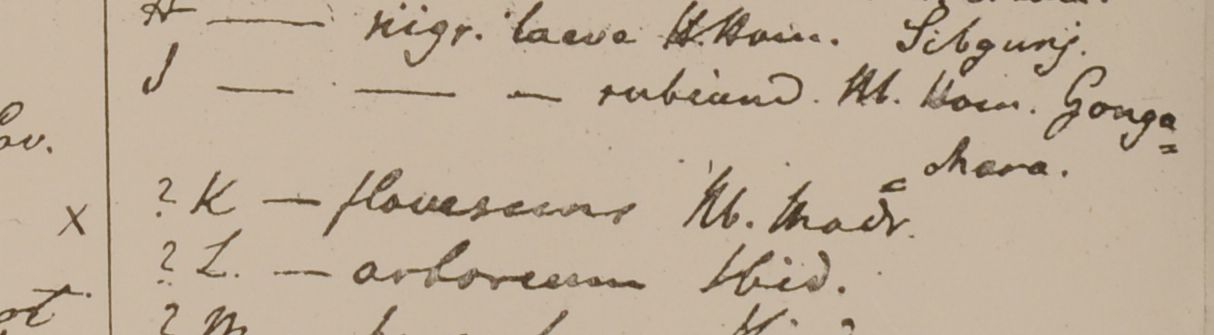 H —— nigr. laeve H. Ham. Sibgunj.
J — — — rubiand. Hb. Ham. Gonga
= chara.
? K — flavescens Hb. Madr.
X
? L. — arboreum Ibid.
? M